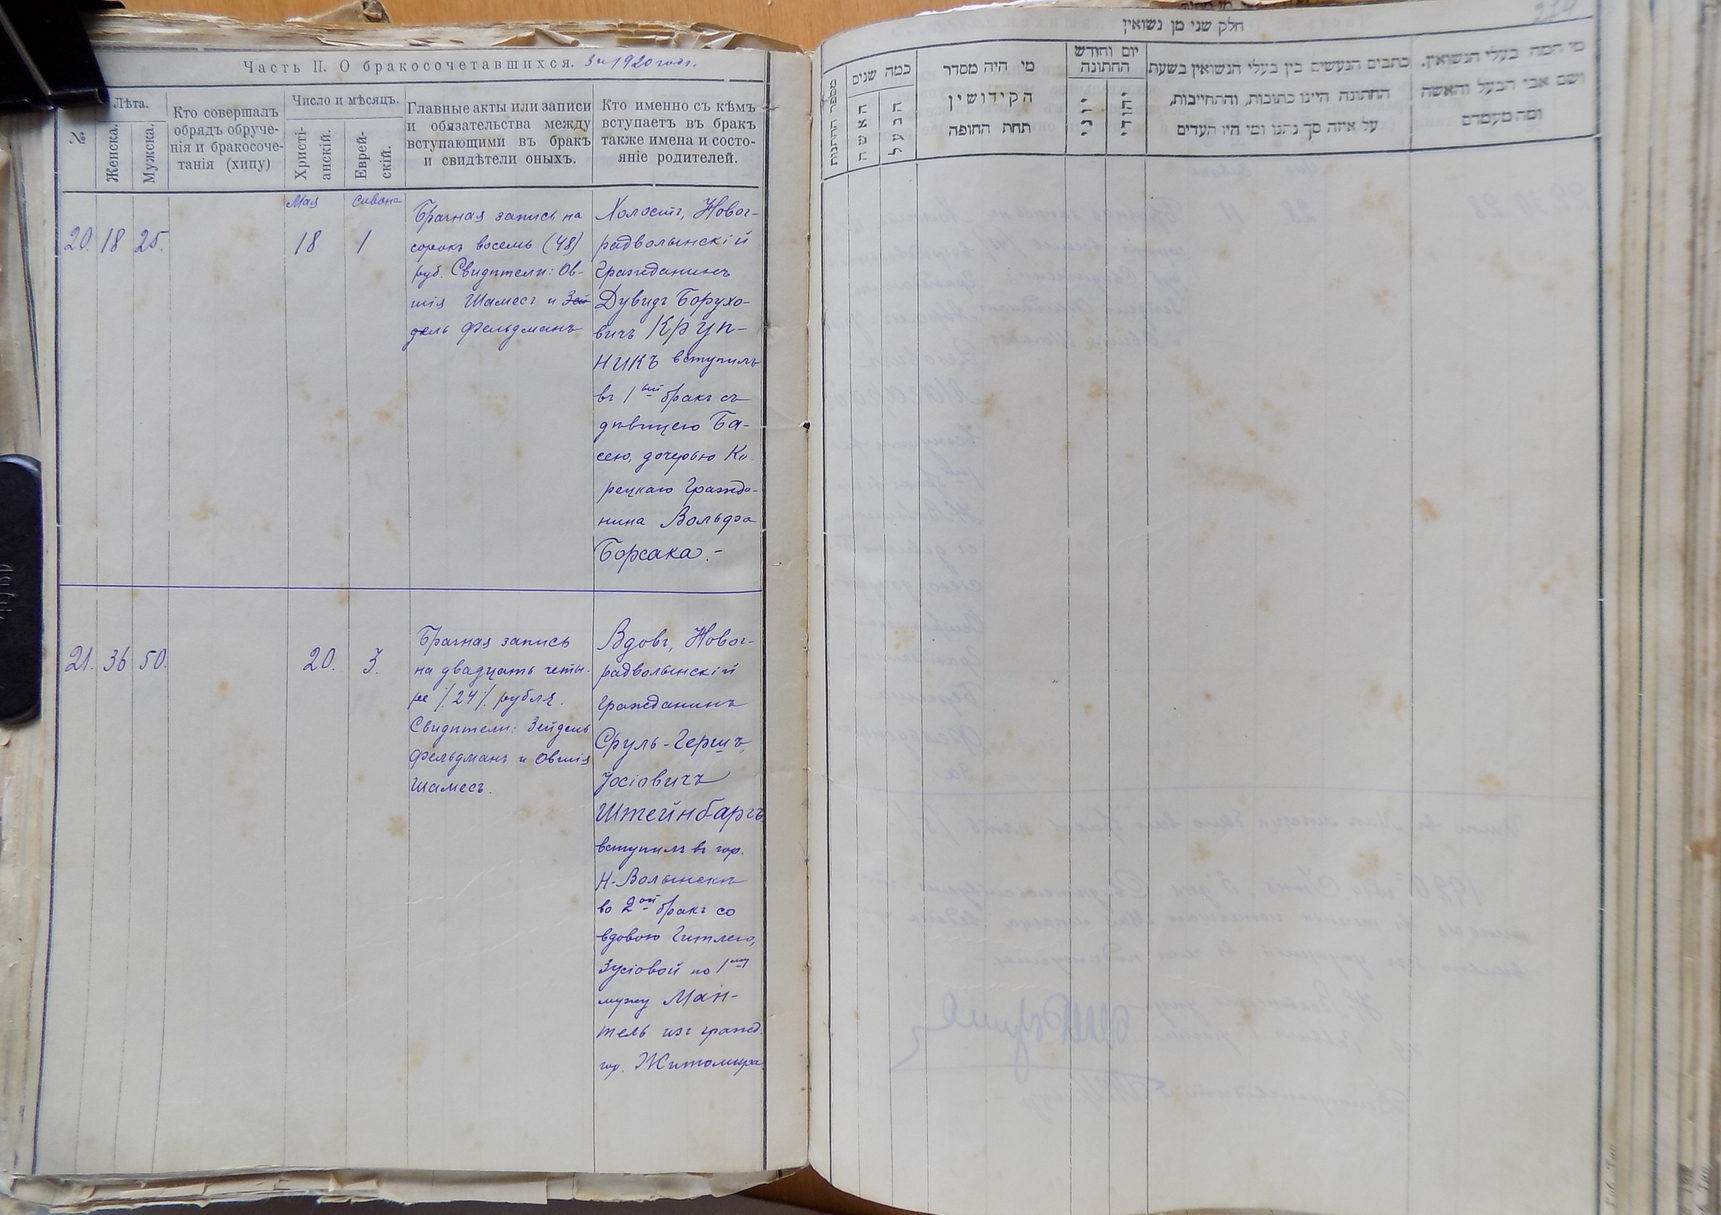 Часть II. О бракосочетавшихся. за 1920 годъ.
№
Лѣта.
Женска.
Мужска.
Кто совершалъ
обрядъ обруче-
нія и бракосоче-
танія (хипу)
Число и мѣсяцъ.
Христі-
анскій.
Еврей-
скій.
Главные акты или записи
и обязательства между
вступающими въ бракъ
и свидѣтели оныхъ.
Кто именно съ кѣмъ
вступаетъ въ бракъ
также имена и состо-
яніе родителей.
20. 18 25.
Мая
18
Сивона
1
Брачная запись на
сорокъ восемь (48)
руб. Свидѣтели: Ов-
шія Шамесъ и Зей
дель Фельдманъ
Холостъ, Новог-
радволынскій
Гражданинъ
Дувидъ Борухо-
вичъ Круп-
никъ вступилъ
въ 1ый бракъ съ
дѣвицею Ба-
сею, дочерью Ко-
рецкаго Гражда-
нина Вольфа
Борсака.-
21. 36 50.
20.
3.
Брачная запись
на двадцать четы-
ре /24/ рубля.
Свидѣтели: Зейдель
Фельдманъ и Овшія
Шамесъ.
Вдовъ, Новог-
радволынскій
гражданинъ
Сруль-Гершъ
Іосіовичъ
Штейнбаргъ
вступилъ въ гор.
Н-Волынскѣ
во 2ой бракъ со
вдовою Гитлею,
Зусіовой по 1му
мужу Ман-
тель изъ гражд.
гор. Житомира
חלק שני מן נשואין
מספר החתונות
כמה שנים
האשה
הבעל
מי היה מסדר
הקידושין
תחת החופה
יום וחודש
החתונה
יווני
יהודי
כתבים הנעשים בין בעלי הנשואין בשעת
החתונה היינו כתובות, והתחייבות,
על איזה סך נתנו ומי היו העדים
מי המה בעלי הנשואין.
ושם אבי הבעל והאשה
ומה מעמדם